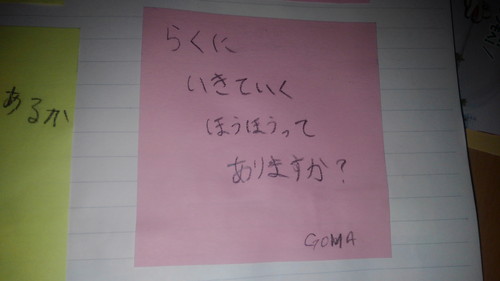 らくに
いきていく
ほうほうって
ありますか?
GOMA
あるか